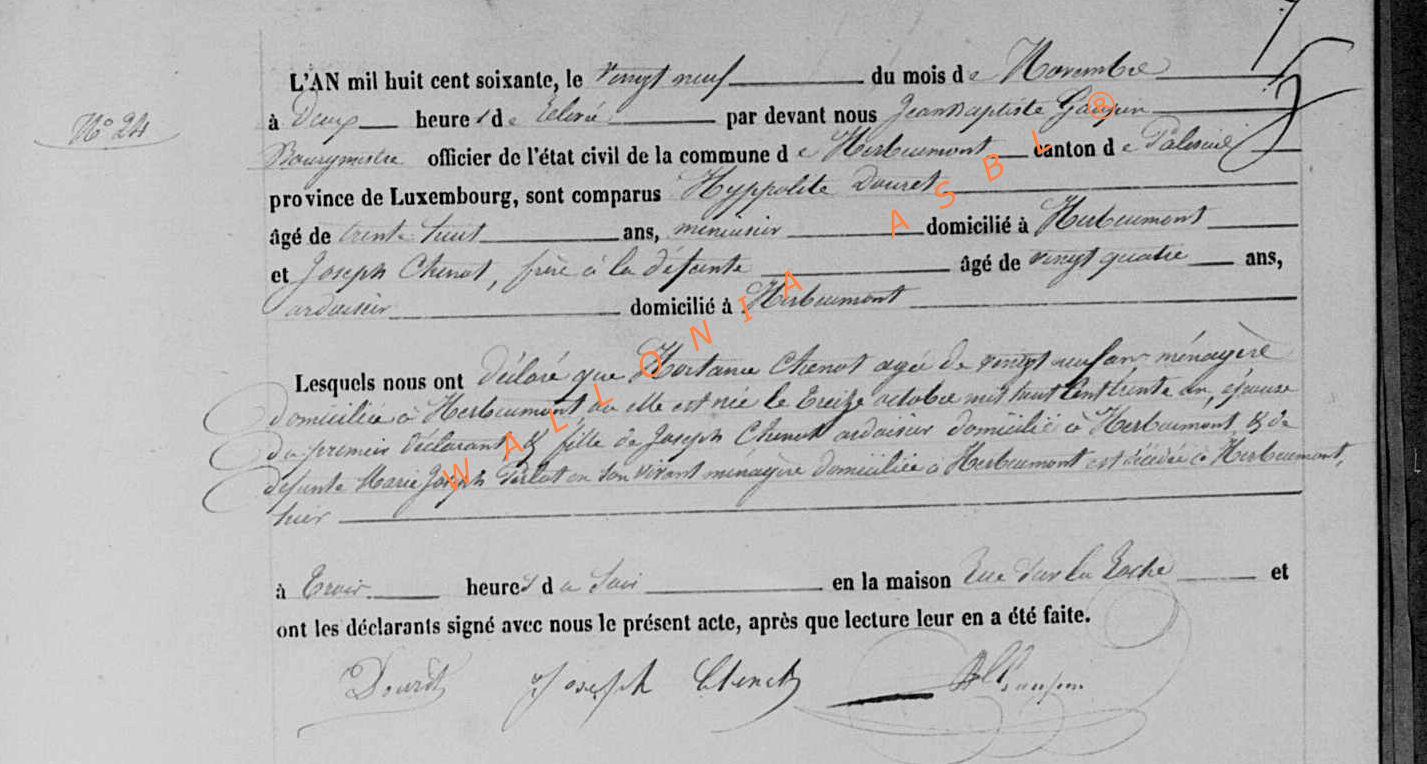 N° 24
L'AN mil huit cent soixante, le vingt neuf du mois de Novembre
à Deux heures de relevée par devant nous Jean Baptiste
Bourgmestre officier de l'état civil de la commune de Herbeumont canton de Paliseul
province de Luxembourg, sont comparus Hyppolite Douret
âgé de trente huit ans, menuisier domicilié à Herbeumont
et Joseph Chenot, frère à la défunte âgé de vingt quatre ans,
ardoisier domicilié à Herbeumont
Lesquels nous ont déclaré que Hortance Chenot agée de vingt neuf ans ménagère
domiciliée à Herbeumont ou elle est née le treize octobre mil huit cent trente un, épouse
du premier déclarant & fille de Joseph Chenot ardoisier domicilié à Herbeumont & de
défunte Marie Joseph en son vivant ménagère domiciliée à Herbeumont est décédée à Herbeumont,
hier
à trois heures du soir en la maison Rue sur la Roche et
ont les déclarants signé avec nous le présent acte, après que lecture leur en a été faite.
Douret Joseph Chenot
WALLONIA ASBL ®